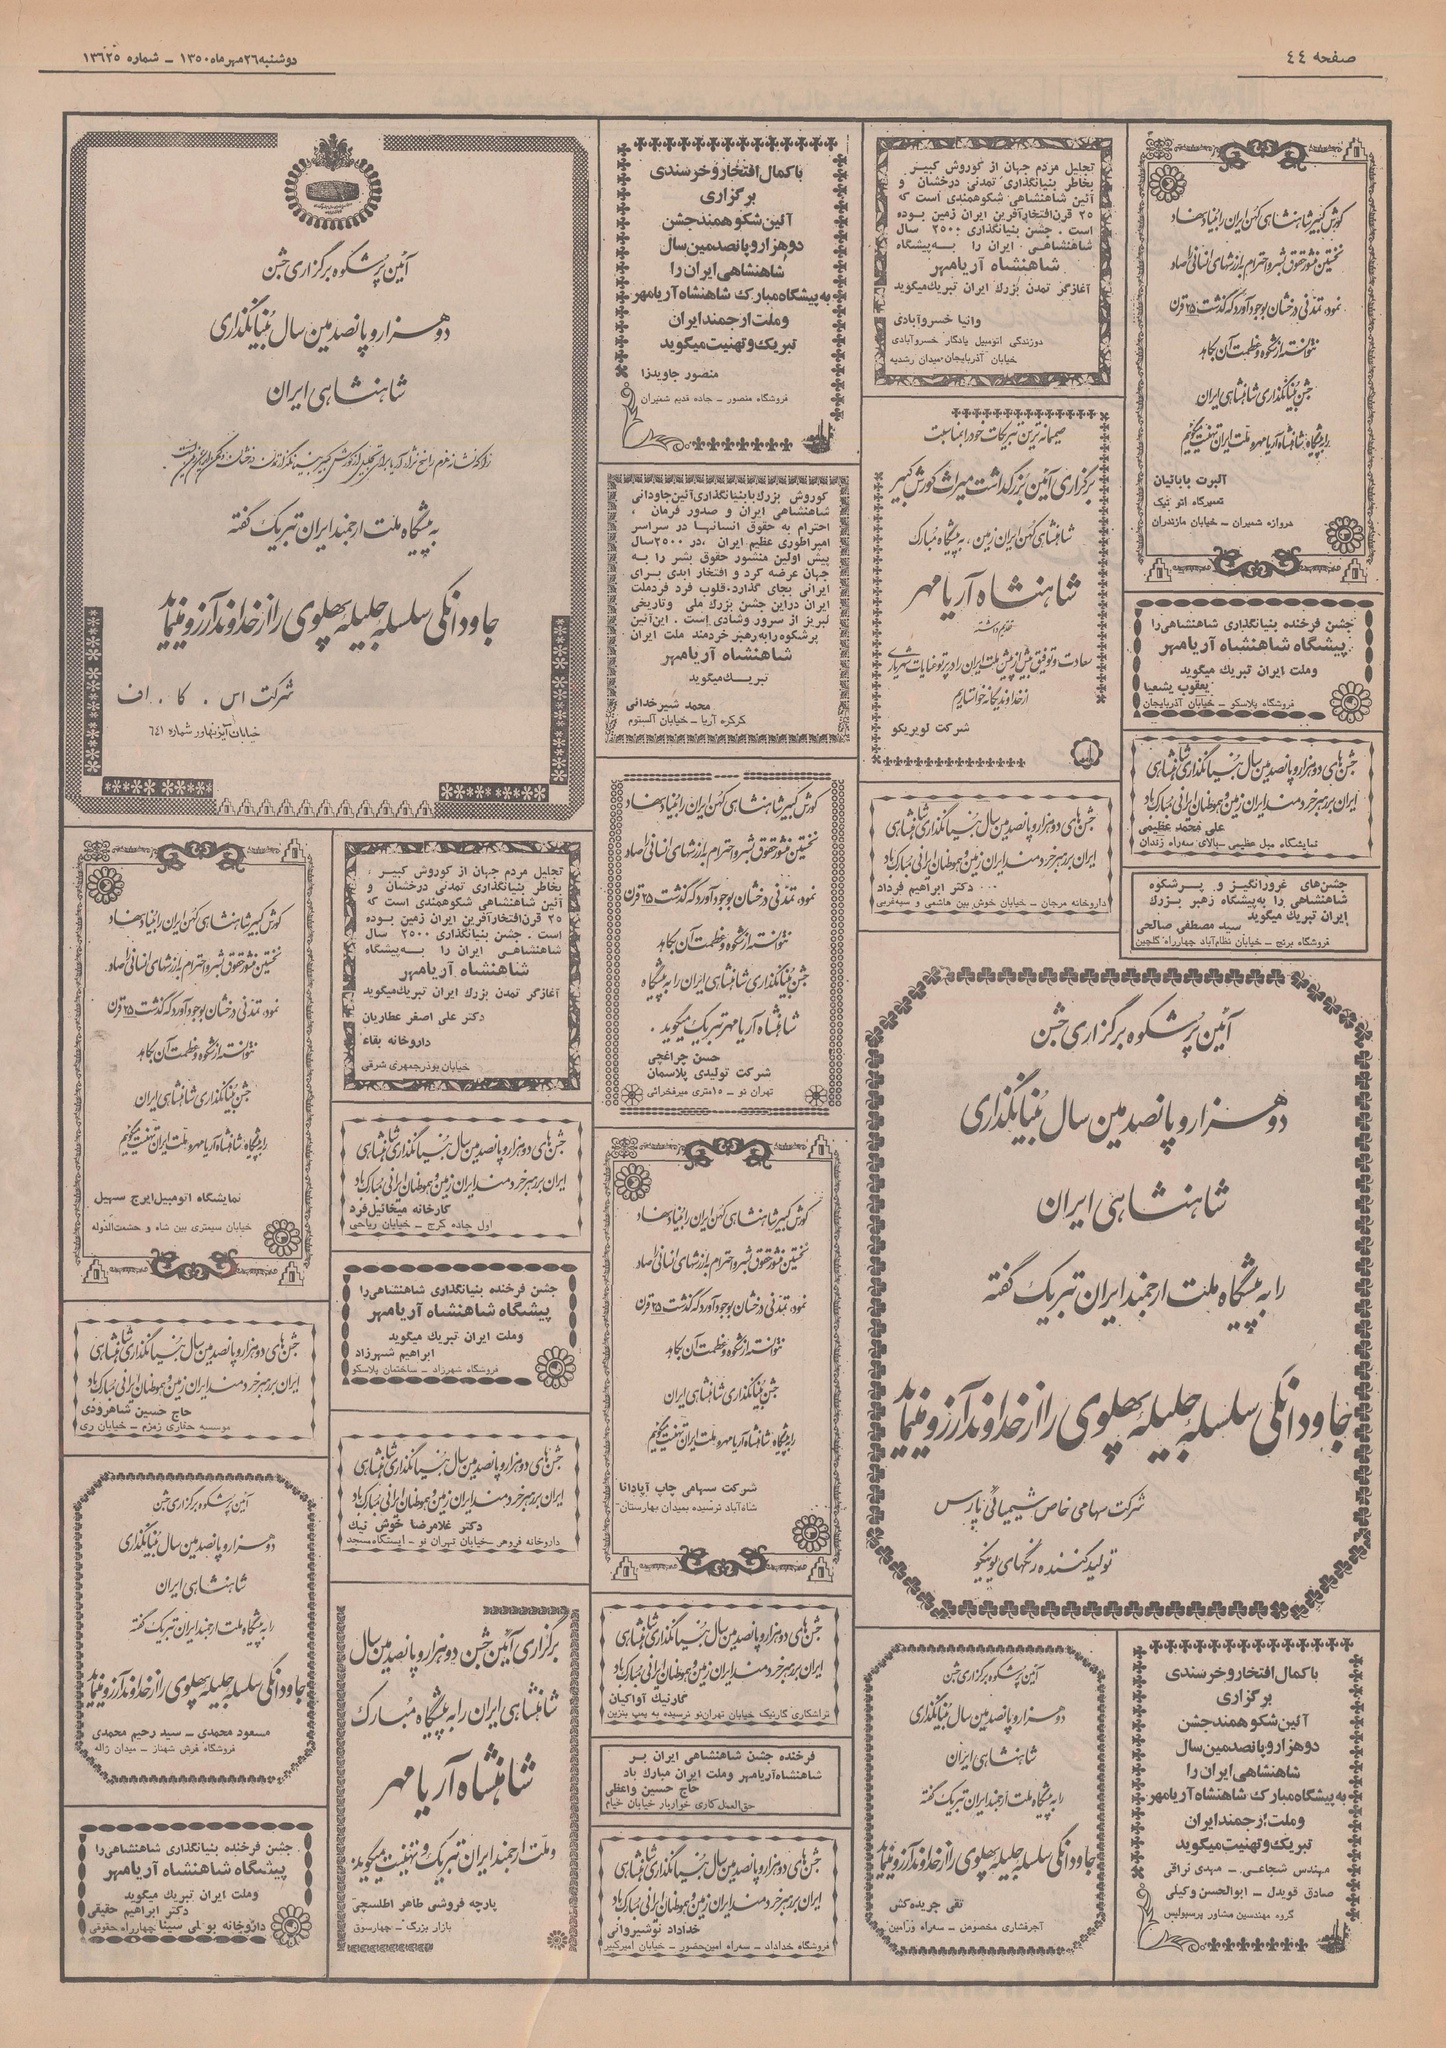 صفحه ٤٤
دوشنبه ٢٦ مهر ماه ١٣٥٠ – شماره ١٣٦٢٥
کورش کبیر شاهنشاهی کهن ایران را بنیاد نهاد
نخستین منشور حقوق بشر و احترام به ارزشهای انسانی را صادر
نمود، تمدنی درخشان بوجود آورد که گذشت ٢٥ قرن
نتوانسته از شکوه و عظمت آن بکاهد
جشن بنیانگذاری شاهنشاهی ایران
را به پیشگاه شاهنشاه آریامهر و ملت ایران تهنیت میگوئیم
آلبرت باباتیان
تعمیرگاه اتو نیک
دروازه شمیران – خیابان مازندران
جشن فرخنده بنیانگذاری شاهنشاهی را
پیشگاه شاهنشاه آریامهر
وملت ایران تبریك میگوید
یعقوب یشعیا
فروشگاه پلاسکو – خیابان آذربایجان
جشن‌های دوهزار و پانصدمین سال بنیانگذاری شاهنشاهی
ایران بر رهبر خردمند ایران زمین و هموطنان ایرانی مبارک باد
علی محمد عظیمی
نمایشگاه مبل عظیمی –بالای سه‌راه زندان
جشن‌های غرورانگیز و پرشکوه
شاهنشاهی را به‌پیشگاه رهبر بزرك
ایران تبریك میگوید
سید مصطفی صالحی
فروشگاه برنج – خیابان نظام‌آباد چهارراه گلچین
تجلیل مردم جهان از کوروش کبیر
بخاطر بنیانگذاری تمدنی درخشان و
آئین شاهنشاهی شکوهمندی است که
٢٥ قرن‌افتخارآفرین ایران زمین بوده
است . جشن بنیانگذاری ٢٥٠٠ سال
شاهنشاهی ایران را به‌پیشگاه
شاهنشاه آریامهر
آغازگر تمدن بزرك ایران تبریك‌میگوید
وانیا خسروآبادی
دوزندگی اتومبیل یادگار خسروآبادی
خیابان آذربایجان–میدان رشدیه
صمیمانه ترین تبریکات خود را بمناسبت
برگزاری آئین بزرگداشت میراث کورش کبیر
شاهنشاهی کهن ایران زمین، به پیشگاه مبارک
شاهنشاه آریامهر
تقدیم داشته
سعادت و توفیق بیش از پیش ملت ایران را در پرتو عنایات شهریاری
از خداوند یگانه خواستاریم
شرکت لوبریکو
جشن‌های دوهزار و پانصدمین سال بنیانگذاری شاهنشاهی
ایران بر رهبر خردمند ایران زمین و هموطنان ایرانی مبارک باد
دکتر ابراهیم فرداد
داروخانه مرجان – خیابان خوش بین هاشمی و سپه‌غربی
آئین پرشکوه برگزاری جشن
دوهزار و پانصدمین سال بنیانگذاری
شاهنشاهی ایران
را به پیشگاه ملت ارجمند ایران تبریک گفته
جاودانگی سلسله جلیله پهلوی را از خداوند آرزو مینماید
شرکت سهامی خاص شیمیائی پارس
تولید کننده رنگهای یونیکو
باکمال افتخاروخرسندی
برگزاری
آئین شکوهمندجشن
دوهزاروپانصدمین‌سال
شاهنشاهی‌ایران را
به‌پیشگاه‌مبارك شاهنشاه‌آریامهر
وملت‌ارجمندایران
تبریك‌وتهنیت‌میگوید
مهندس شجاعی – مهدی نراقی
صادق قویدل – ابوالحسن وکیلی
گروه مهندسین مشاور پرسپولیس
آئین پرشکوه برگزاری جشن
دوهزار و پانصدمین سال بنیانگذاری
شاهنشاهی ایران
را به پیشگاه ملت ارجمند ایران تبریک گفته
جاودانگی سلسله جلیله پهلوی را از خداوند آرزو مینماید
تقی جریده‌کش
آجرفشاری مخصوص – سه‌راه ورامین
باکمال افتخاروخرسندی
برگزاری
آئین شکوهمندجشن
دوهزاروپانصدمین‌سال
شاهنشاهی‌ایران را
به‌پیشگاه‌مبارك شاهنشاه‌آریامهر
وملت‌ارجمندایران
تبریك‌وتهنیت‌میگوید
منصور جاویدزا
فروشگاه منصور – جاده قدیم شمیران
کوروش بزرك‌با بنیانگذاری آئین‌جاودانی
شاهنشاهی ایران و صدور فرمان ،
احترام به حقوق انسانها در سراسر
امپراطوری عظیم ایران ،در ٢٥٠٠سال
پیش اولین منشور حقوق بشر را به
جهان عرضه کرد و افتخار ابدی برای
ایرانی بجای گذارد.قلوب فرد فردملت
ایران دراین جشن بزرك ملی وتاریخی
لبریز از سرور وشادی است . این‌آئین
پرشکوه رابه‌رهبر خردمند ملت ایران
شاهنشاه آریامهر
تبریك میگوید
محمد شیرخدائی
کرکره آریا – خیابان آلستوم
کورش کبیر شاهنشاهی کهن ایران را بنیاد نهاد
نخستین منشور حقوق بشر و احترام به ارزشهای انسانی را صادر
نمود، تمدنی درخشان بوجود آورد که گذشت ٢٥ قرن
نتوانسته از شکوه و عظمت آن بکاهد
جشن بنیانگذاری شاهنشاهی ایران را به پیشگاه
شاهنشاه آریامهر تبریک میگوید .
حسن چراغچی
شرکت تولیدی پلاسمان
تهران نو – ١٥متری میرفخرائی
کورش کبیر شاهنشاهی کهن ایران را بنیاد نهاد
نخستین منشور حقوق بشر و احترام به ارزشهای انسانی را صادر
نمود، تمدنی درخشان بوجود آورد که گذشت ٢٥ قرن
نتوانسته از شکوه و عظمت آن بکاهد
جشن بنیانگذاری شاهنشاهی ایران
را به پیشگاه شاهنشاه آریامهر و ملت ایران تهنیت میگوئیم
شرکت سهامی چاپ آپادانا
شاه‌آباد نرسیده بمیدان بهارستان
جشن‌های دوهزار و پانصدمین سال بنیانگذاری شاهنشاهی
ایران بر رهبر خردمند ایران زمین و هموطنان ایرانی مبارک باد
گارنیك آواکیان
تراشکاری گارنیک خیابان تهران‌نو نرسیده به پمپ بنزین
فرخنده جشن شاهنشاهی ایران بر
شاهنشاه‌آریامهر وملت ایران مبارك باد
حاج حسین واعظی
حق‌العمل‌کاری خواربار خیابان خیام
جشن‌های دوهزار و پانصدمین سال بنیانگذاری شاهنشاهی
ایران بر رهبر خردمند ایران زمین و هموطنان ایرانی مبارک باد
خداداد نوشیروانی
فروشگاه خداداد – سه‌راه امین‌حضور – خیابان امیرکبیر
آئین پرشکوه برگزاری جشن
دوهزار و پانصدمین سال بنیانگذاری
شاهنشاهی ایران
به پیشگاه ملت ارجمند ایران تبریک گفته
جاودانگی سلسله جلیله پهلوی را از خداوند آرزو مینماید
شرکت اس . کا . اف
خیابان آیزنهاور شماره ٦٤١
تجلیل مردم جهان از کوروش کبیر ،
بخاطر بنیانگذاری تمدنی درخشان و
آئین شاهنشاهی شکوهمندی است که
٢٥ قرن‌افتخارآفرین ایران زمین بوده
است . جشن بنیانگذاری ٢٥٠٠ سال
شاهنشاهی ایران را به‌پیشگاه
شاهنشاه آریامهر
آغازگر تمدن بزرك ایران تبریك‌میگوید
دکتر علی اصغر عطاریان
داروخانه بقاء
خیابان بوذرجمهری شرقی
جشن‌های دوهزار و پانصدمین سال بنیانگذاری شاهنشاهی
ایران بر رهبر خردمند ایران زمین و هموطنان ایرانی مبارک باد
کارخانه میخائیل‌فرد
اول جاده کرج – خیابان ریاحی
جشن فرخنده بنیانگذاری شاهنشاهی را
پیشگاه شاهنشاه آریامهر
وملت ایران تبریك میگوید
ابراهیم شهرزاد
فروشگاه شهرزاد – ساختمان پلاسکو
جشن‌های دوهزار و پانصدمین سال بنیانگذاری شاهنشاهی
ایران بر رهبر خردمند ایران زمین و هموطنان ایرانی مبارک باد
دکتر غلامرضا خوش نیك
داروخانه فروهر –خیابان تهران نو – ایستگاه مسجد
برگزاری آئین جشن دوهزار و پانصدمین سال
شاهنشاهی ایران را به پیشگاه مبارک
شاهنشاه آریامهر
و ملت ارجمند ایران تبریک و تهنیت میگوید:
پارچه فروشی طاهر اطلسچی
بازار بزرگ – چهارسوق
کورش کبیر شاهنشاهی کهن ایران را بنیاد نهاد
نخستین منشور حقوق بشر و احترام به ارزشهای انسانی را صادر
نمود، تمدنی درخشان بوجود آورد که گذشت ٢٥ قرن
نتوانسته از شکوه و عظمت آن بکاهد
جشن بنیانگذاری شاهنشاهی ایران
را به پیشگاه شاهنشاه آریامهر و ملت ایران تهنیت میگوئیم
نمایشگاه اتومبیل‌ایرج سهیل
خیابان سیمتری بین شاه و حشمت‌الدوله
جشن‌های دوهزار و پانصدمین سال بنیانگذاری شاهنشاهی
ایران بر رهبر خردمند ایران زمین و هموطنان ایرانی مبارک باد
حاج حسین شاهرودی
موسسه حفاری زمزم – خیابان ری
آئین پرشکوه برگزاری جشن
دوهزار و پانصدمین سال بنیانگذاری
شاهنشاهی ایران
را به پیشگاه ملت ارجمند ایران تبریک گفته
جاودانگی سلسله جلیله پهلوی را از خداوند آرزو مینماید
مسعود محمدی – سید رحیم محمدی
فروشگاه فرش شهناز – میدان ژاله
جشن فرخنده بنیانگذاری شاهنشاهی را
پیشگاه شاهنشاه آریامهر
وملت ایران تبریك میگوید
دکتر ابراهیم حقیقی
داروخانه بوعلی سینا چهارراه حقوقی